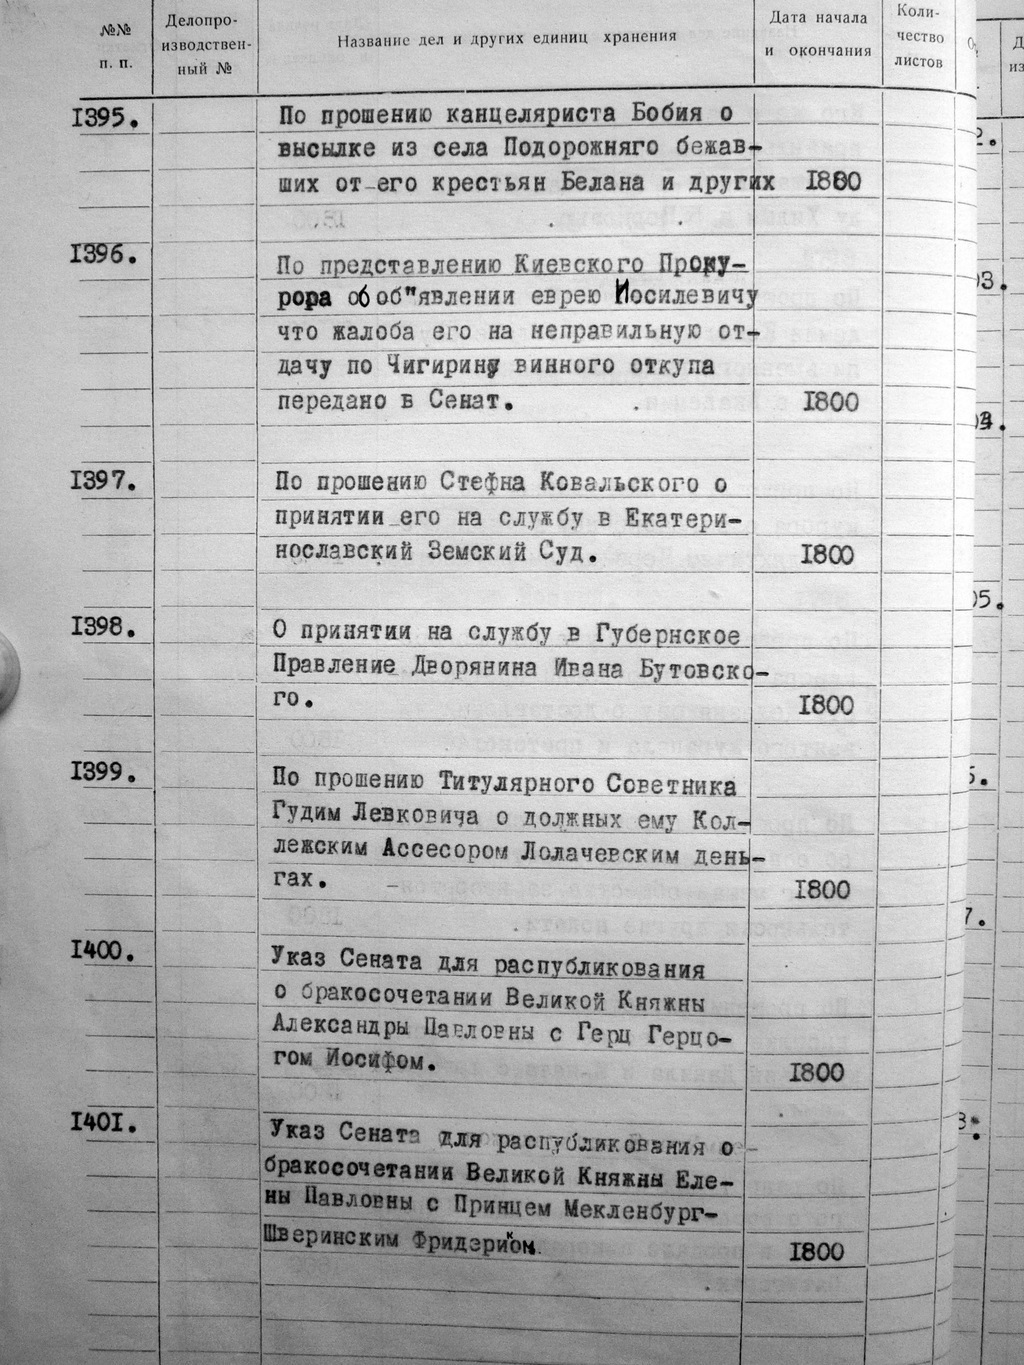 №№ п. п.
Делопро-
изводствен-
ный №
Название дел и других единиц хранения
Дата начала
и окончания
Коли-
чество
листов
1395.
По прошению канцеляриста Бобия о
высылке из села Подорожняго бежав-
ших от его крестьян Белана и других 1800
1396.
По представлению Киевского Проку-
рора об об"явлении еврею Иосилевичу
что жалоба его на неправильную от-
дачу по Чигирину винного откупа
передано в Сенат. 1800
1397.
По прошению Стефна Ковальского о
принятии его на службу в Екатери-
нославский Земский Суд. 1800
1398.
О принятии на службу в Губернское
Правление Дворянина Ивана Бутовско-
го. 1800
1399.
По прошению Титулярного Советника
Гудим Левковича о должных ему Кол-
лежским Ассесором Лолачевским день-
гах. 1800
1400.
Указ Сената для распубликования
о бракосочетании Великой Княжны
Александры Павловны с Герц Герцо-
гом Иосифом. 1800
1401.
Указ Сената для распубликования о
бракосочетании Великой Княжны Еле-
ны Павловны с Принцем Мекленбург-
Шверинским Фридэриком. 1800